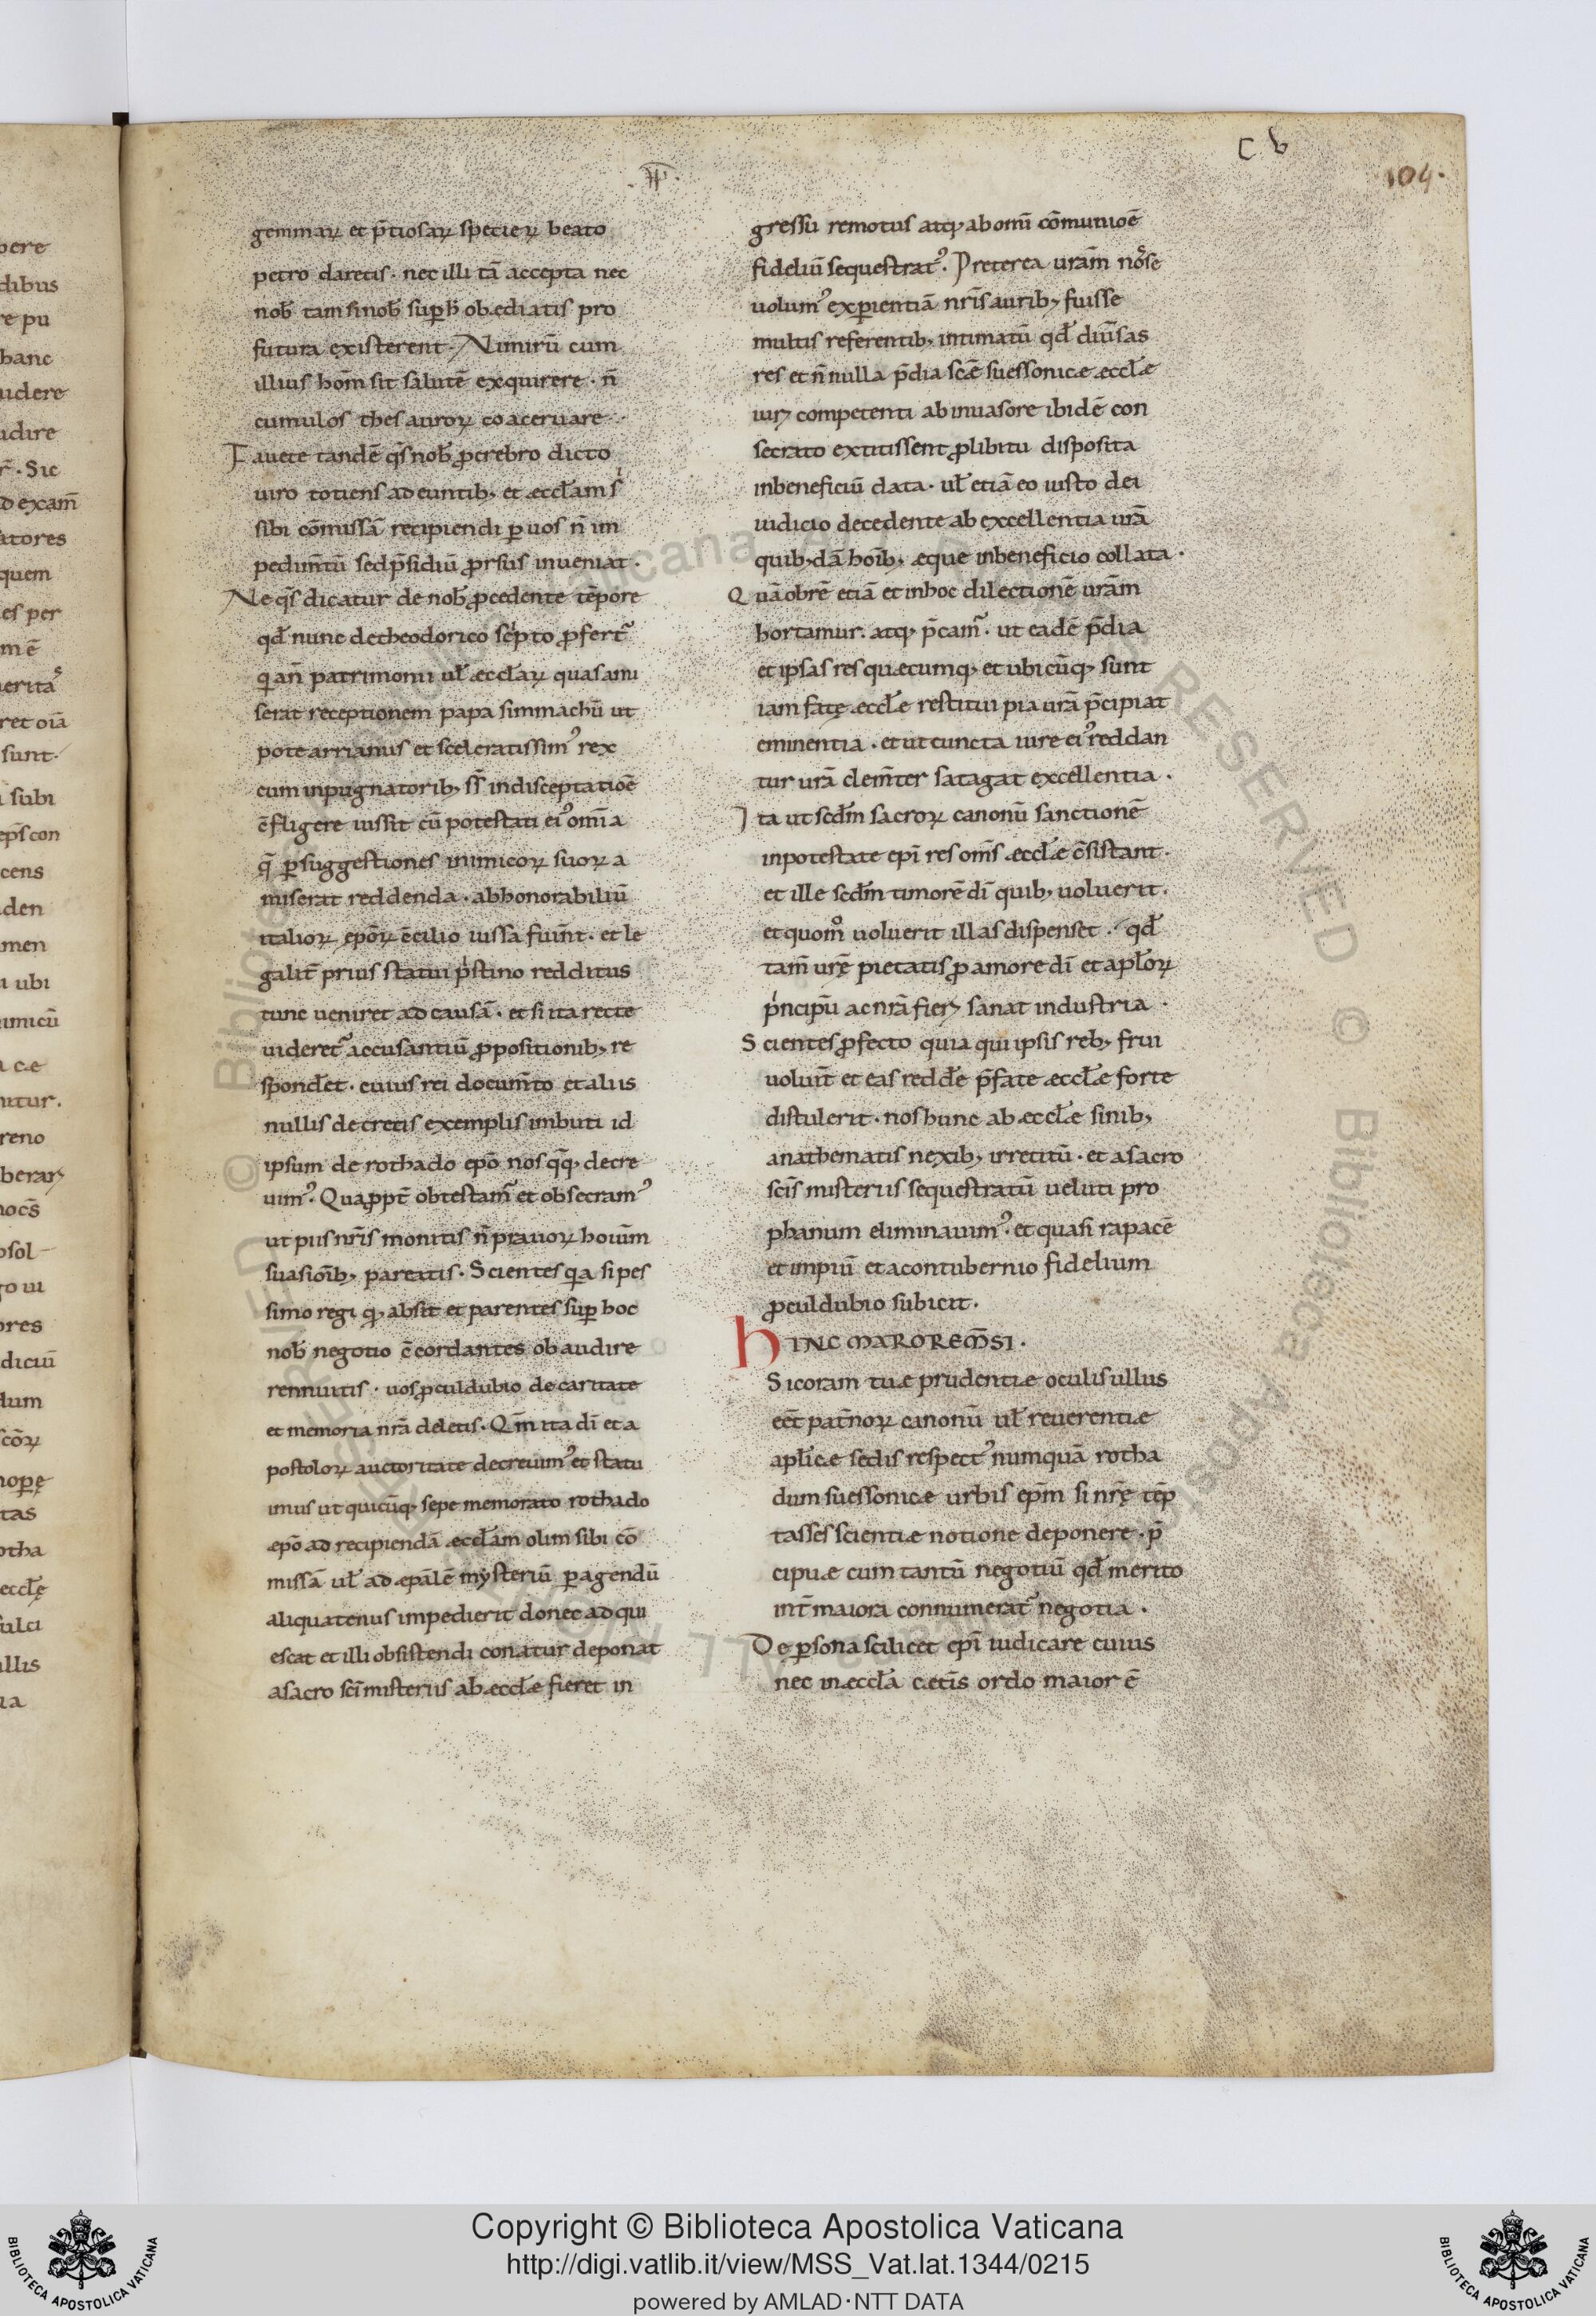 C b
104.
gemmaꝝ et p̄tiosaꝝ specieꝝ beato
petro daretis. nec illi tā accepta nec
nob̄ tam si nob̄ sup̱ h̄ obediatis pro
futura existerent. Nimirū cum
illius hom̄ sit salutē exquirere. n̄
cumulos thesauroꝝ coaceruare.
Fauete tandē q̄s nob̄ ꝓ crebro dicto
uiro totiens adeuntib; et æccl̄am s
sibi cōmissā recipiendi ꝑ uos n̄ im
pedim̄tū sed p̄sidiū ꝓrsus inueniat.
Ne q̄s dicatur de nob̄ ꝓcedente tēpore
qđ nunc de theodorico sc̄pto ꝓfert᷑
qi an̄ patrimonii ul̄ æccl̄aꝝ quas ami
serat receptionem papa simmachū ut
pote arrianus et sceleratissimꝰ rex
cum inpugnatorib; s̄s in disceptatioē
c̄fligere iussit cū potestati eiꝰ om̄ia
q̄ ꝑ suggestiones inimicoꝝ suoꝝ a
miserat reddenda. ab honorabiliū
italioꝝ ep̄oꝝ c̄cilio iussa fuer̄t. et le
galit̄ prius statui pͥstino redditus
tunc ueniret ad causā. et si ita recte
uideret᷑ accusantiū ꝓpositionib; re
spondet̄. cuius rei docum̄to et aliis
nullis decretis exemplis imbuti id
ipsum de rothado ep̄o nos q̄q; decre
uimꝰ. Quapp̄t obtestam᷑ et obsecramꝰ
ut piis nr̄is monitis n̄ prauoꝝ houim̄
suasioīb; pareatis. Scientes qa si pes
simo regi q̄ absit et parentes sup̱ hoc
nob̄ negotio c̄cordantes obaudire
rennuitis. uos ꝓculdubio de caritate
et memoria nr̄a deletis. Qm̄ ita dī et a
postoloꝝ auctoritate decreuimꝰ et statu
imus ut quicūq; sepe memorato rothado
æp̄o ad recipiendā æccl̄am olim sibi cō
missā ul̄ ad æpālē mysteriū ꝑagendū
aliquatenus impedierit donec ad qui
escat et illi obsistendi conatur deponat
a sacro sc̄i misteriis ab æccl̄æ fieret in
gressu remotus atq; ab omī cōmunioē
fideliū sequestrat᷑ꝰ. Preterea urām nosse
uolumꝰ exꝑientiā nr̄is aurib; fuisse
multis referentib; intimatū qđ diūsas
res et n̄nulla p̄dia sc̄æ suessonicæ æccl̄æ
iurȝ competenti ab inuasore ibidē con
secrato extitissent ꝓ libitu disposita
in beneficiū data. ul̄ etiā eo iusto dei
iudicio decedente ab excellentia urā
quib;dā hoīb; æque in beneficio collata.
Quā obrē etiā et in hoc dilectionē urām
hortamur. atq; p̄cam᷑. ut eadē p̄dia
et ipsas res quæcumq; et ubicūq; sunt
iam fatę æccl̄e restitui pia urā p̄cipiat
eminentia. et ut cuncta iure eiꝰ reddan
tur urā clem̄ter satagat excellentia.
Ita ut scd̄m sacroꝝ canonū sanctionē
in potestate epī res om̄s æccl̄æ c̄sistant.
et ille scd̄m timorē dī quib; uoluerit.
et quomō uoluerit illas dispenset. qđ
tam̄ urę̄ pietatis ꝓ amore dī et apl̄oꝝ
pͥncipū ac nr̄ā fierȝ sanat industria.
Scientes ꝓfecto quia qui ipsis reb; frui
uolūit et eas redde p̄fate æccl̄æ forte
distulerit. nos hunc ab æccl̄æ sinib;
anathematis nexib; irretitū. et a sacro
sc̄is misteriis sequestratū ueluti pro
phanum eliminauimꝰ. et quasi rapacē
et impiū et a contubernio fidelium
ꝓculdubio subicit.
HINC MAROREM̄SI.
Si coram tuæ prudentiæ oculis ullus
eēt pat̄noꝝ canonū ul̄ reuerentiæ
apl̄icæ sedis respect᷑ numquā rotha
dum suessonicæ urbis ep̄m si nr̄ę tēp
tasses scientiæ notione deponere. p̄
cipuæ cum tantū negotiū qđ merito
int̄ maiora connumerat᷑ negotia.
De ꝑsona scilicet epī iudicare cuius
nec in æccl̄a cæt̄is ordo maior ē
Copyright © Biblioteca Apostolica Vaticana
http://digi.vatlib.it/view/MSS_Vat.lat.1344/0215
powered by AMLAD·NTT DATA